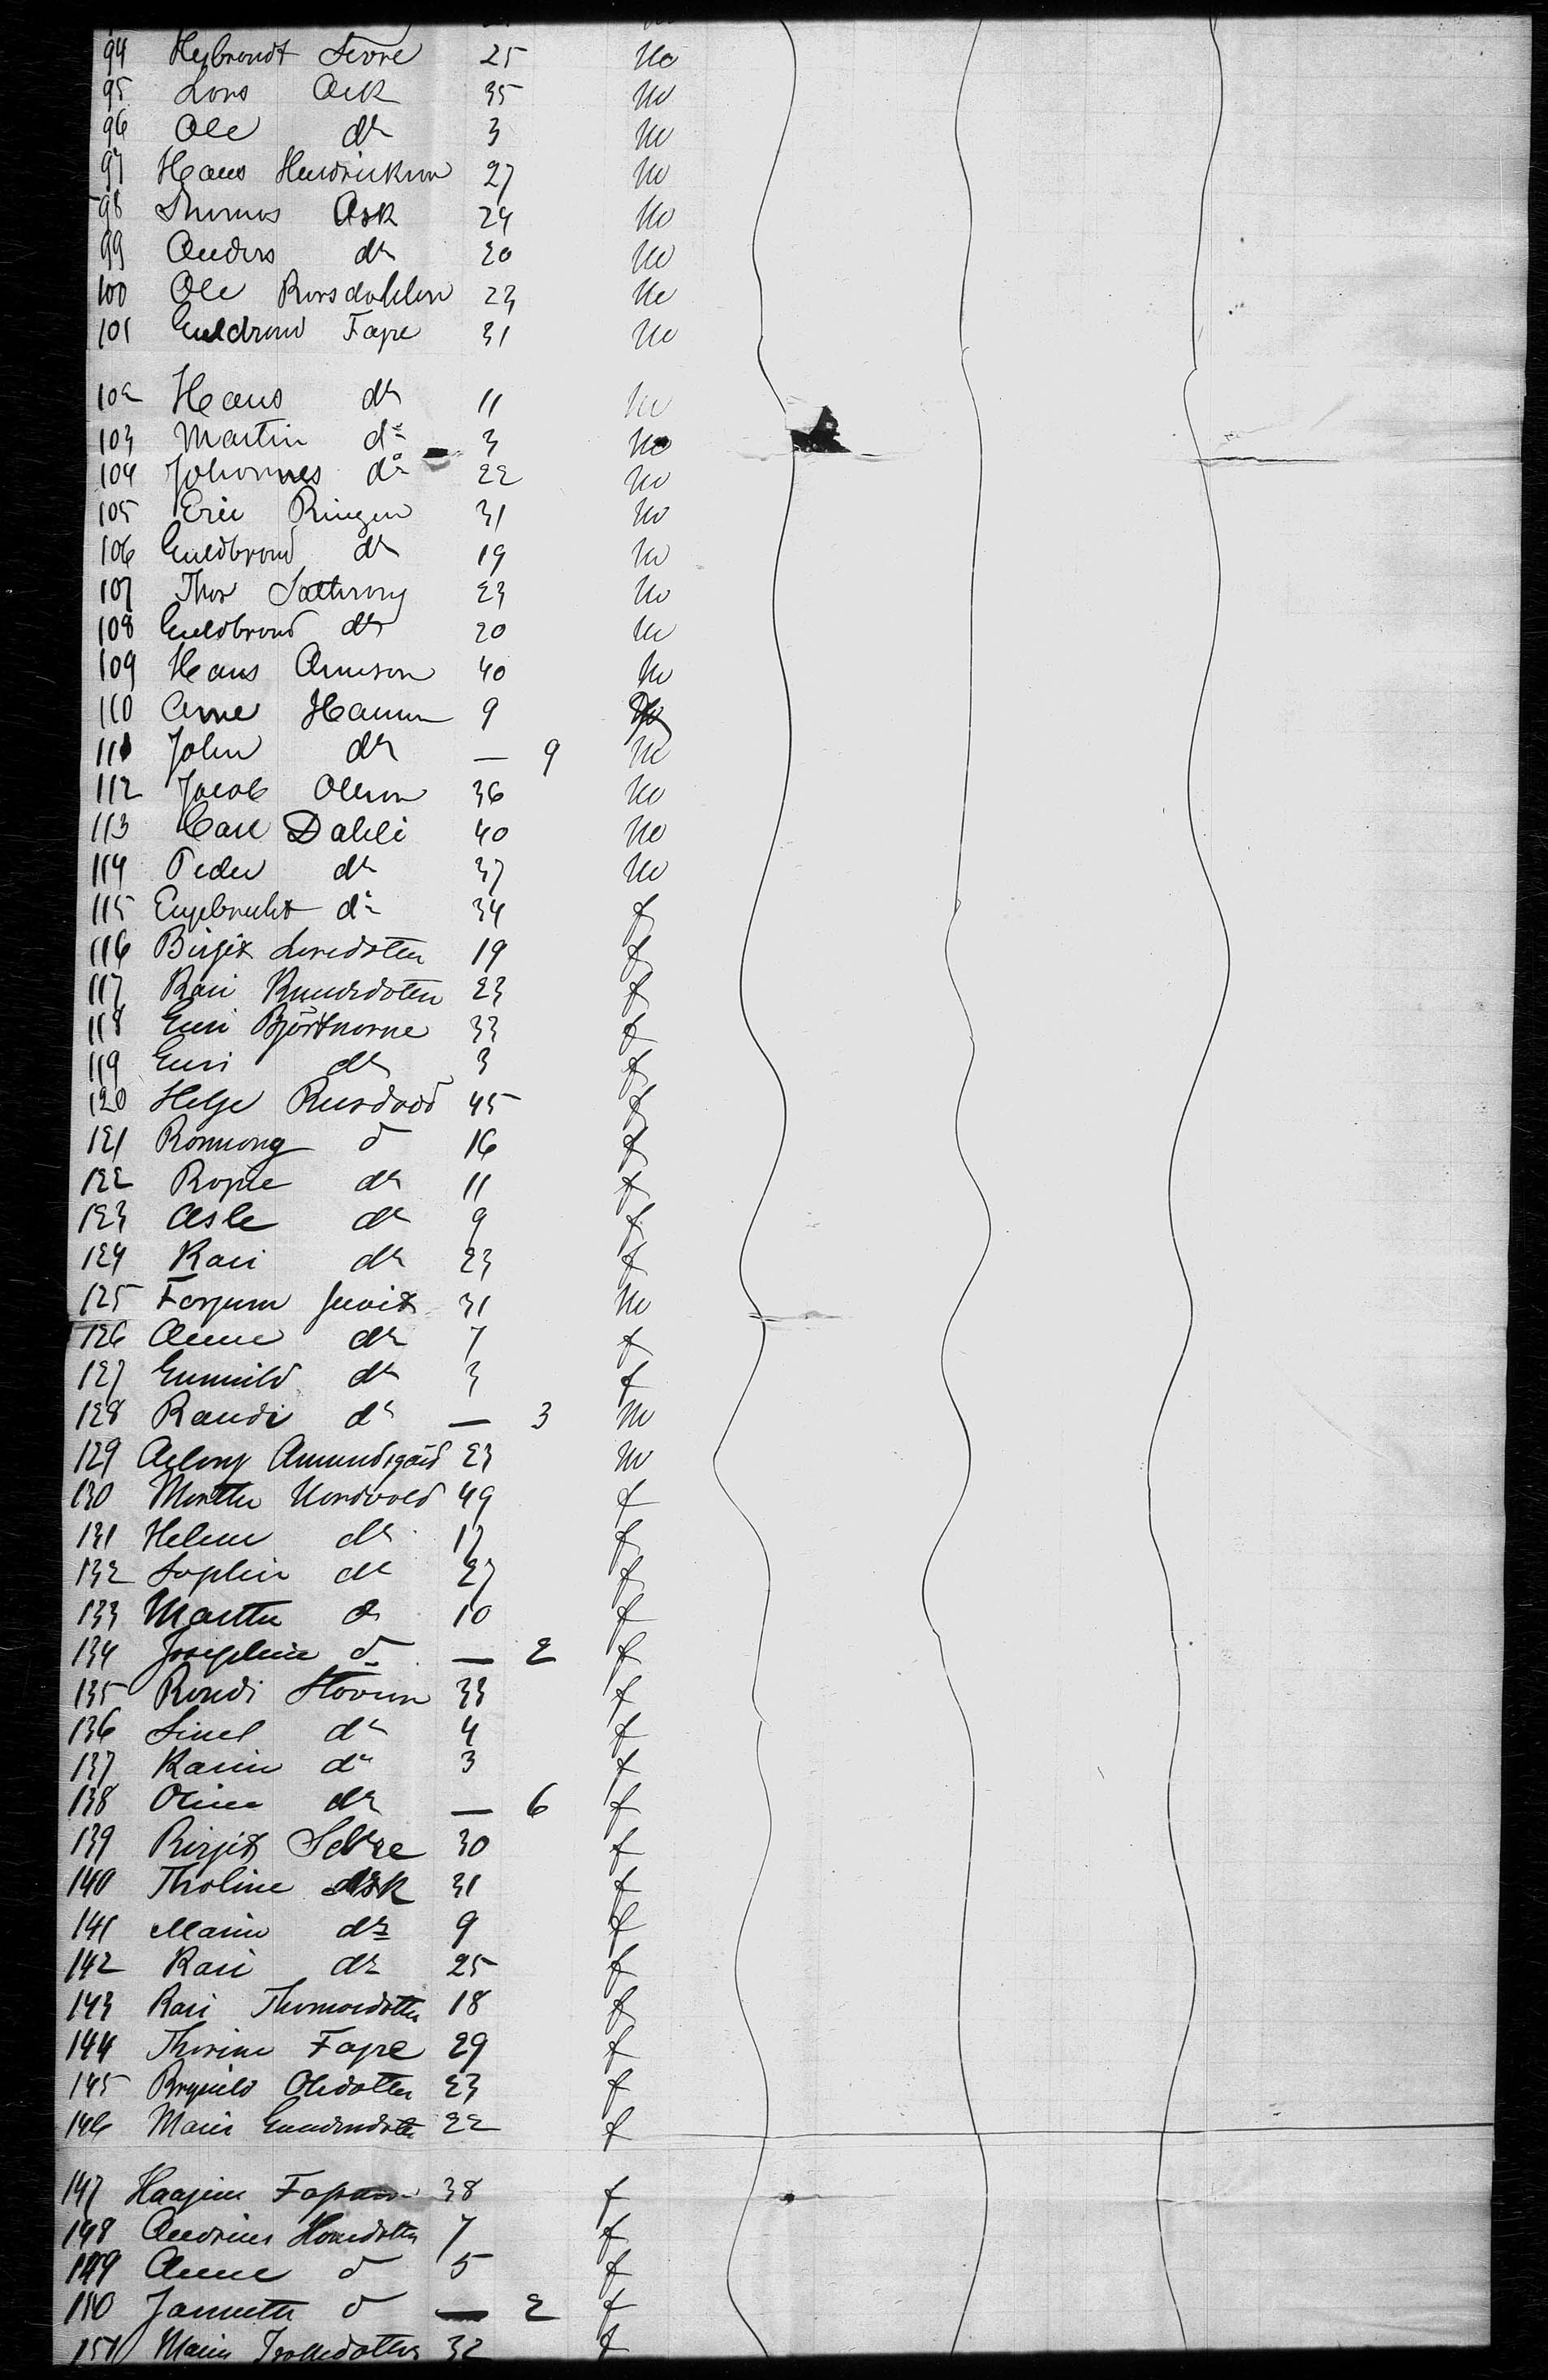 94 Heljbrondt Sevre 25 m
95 Lars Ask 35 m
96 Ole do 3 m
97 Hans Hendrickson 27 m
98 Thomas Ask 24 m
99 Anders do 20 m
100 Ole Rorsdahlen 23 m
101 Guldrand Fape 31 m
102 Hans do 11 m
103 Martin do 3 m
104 Johannes do 22 m
105 Eric Ringen 31 m
106 Guldbrand do 19 m
107 Thor Sattrang 23 m
108 Guldbrand do 20 m
109 Hans Arneson 40 m
110 Arne Hansen 9 m
111 John do — 9 m
112 Jacob Olsen 36 m
113 Carl Dahle 40 m
114 Peder do 37 m
115 Engebrecht do 34 f
116 Birgit Larsdotter 19 f
117 Kari Knudsdotter 23 f
118 Guri Björtnorne 33 f
119 Guri do 3 f
120 Helge Rusdood 45 f
121 Ronnong d 16 f
122 do 11 f
123 Asle do 9 f
124 Kari do 23 f
125 31 m
126 Anne do 7 f
127 Gunnild do 3 f
128 Randi do — 3 m
129 Amundsgaard 23 m
130 Marthe Nordvold 49 f
131 Helene do 17 f
132 Sophie do 27 f
133 Marthe do 10 f
134 Josephine d — 2 f
135 Randi 33 f
136 Sinel do 4 f
137 Karin do 3 f
138 Oline do — 6 f
139 Birgit Sevre 30 f
140 Tholine Ask 31 f
141 Marie do 9 f
142 Kari do 25 f
143 Kari Thomasdotter 18 f
144 Thorine Fapre 29 f
145 Olsdotter 23 f
146 Marie 22 f
147 38 f
148 Hansdotter 7 f
149 Anne d 5 f
150 Jannette d — 2 f
151 Marie 32 f